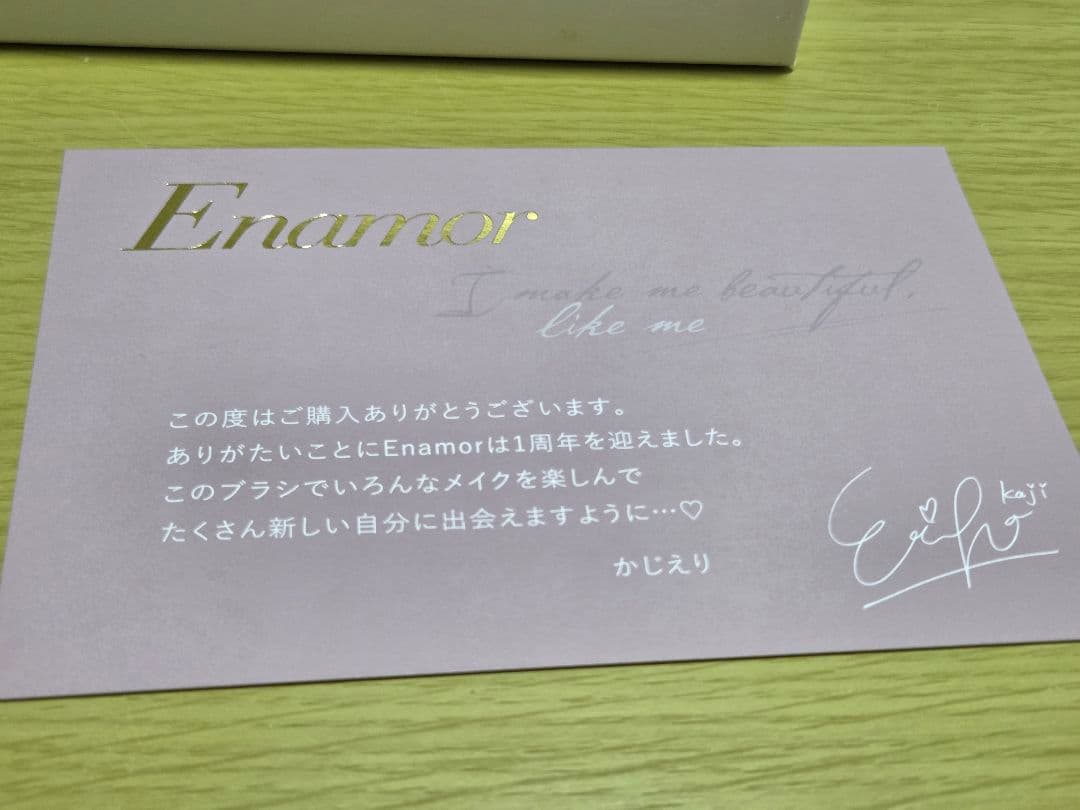 Enamor
I make me beautiful.
like me
この度はご購入ありがとうございます。
ありがたいことにEnamorは1周年を迎えました。
このブラシでいろんなメイクを楽しんで
たくさん新しい自分に出会えますように…♡
かじえり
kaji